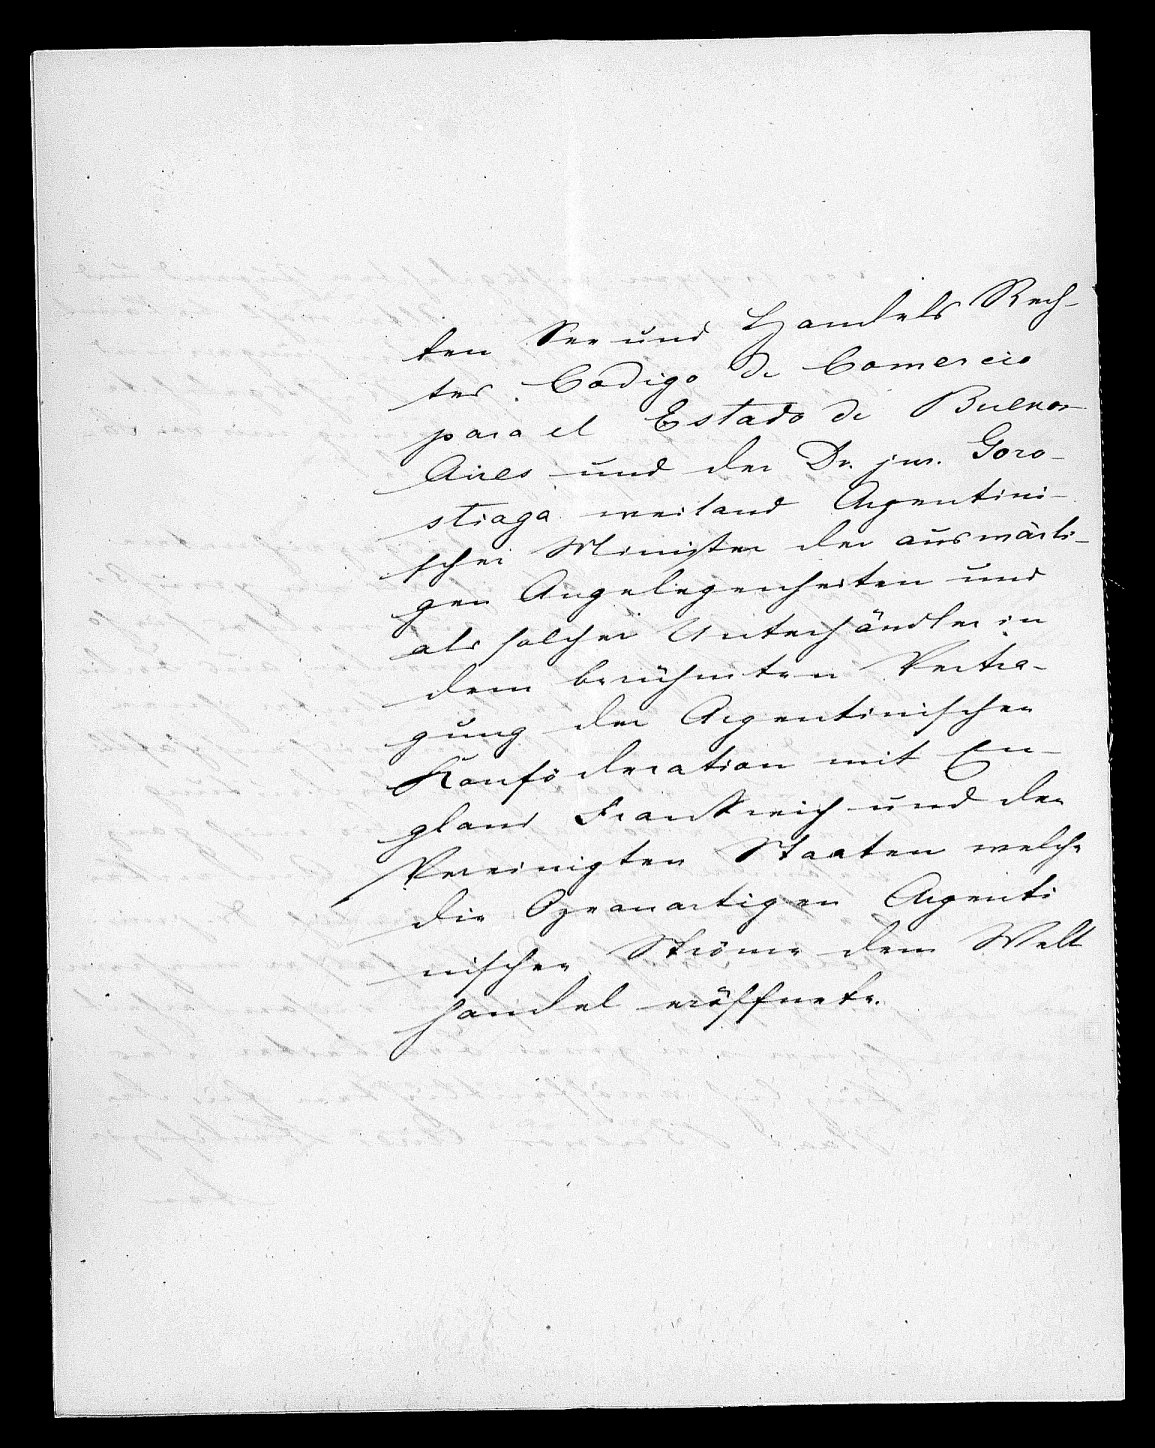 ten See und Handels Rech-
tes. Codigo de Comercio
para el Estado de Buenos
Aires und der Dr. jur. Goro-
stiaga weiland Argentini-
scher Minister der auswärti-
gen Angelegenheiten und
als solcher Unterhändler in
dem berühmten Vertra-
gung der Argentinischen
Konföderation mit En-
gland Frankreich und den
Vereinigten Staaten welche
die Ozeanartigen Argenti
nischen Ströme dem Welt
handel eröffnete.